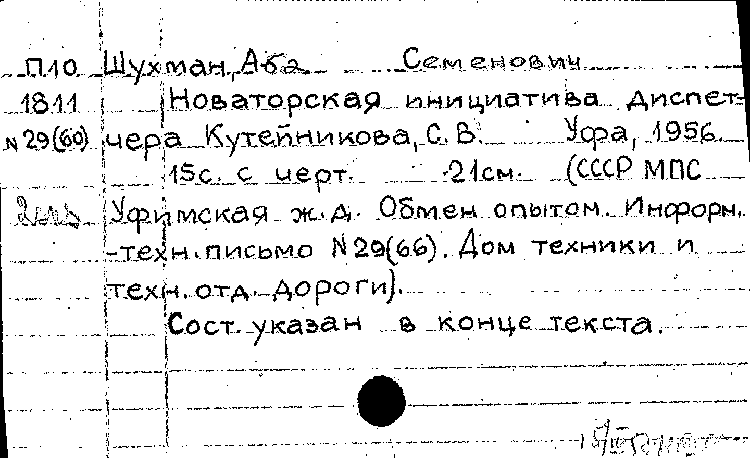 П10 Шухман, Аба Семенович
1811 Новаторская инициатива диспет-
N 29(60) чера Кутейникова, С. В. Уфа, 1956.
15с. с черт. 21см. (СССР МПС
Уфимская ж.д. Обмен опытом. Информ.
-техн. письмо N 29(66). Дом техники и
техн. отд. дороги).
Сост. указан в конце текста.